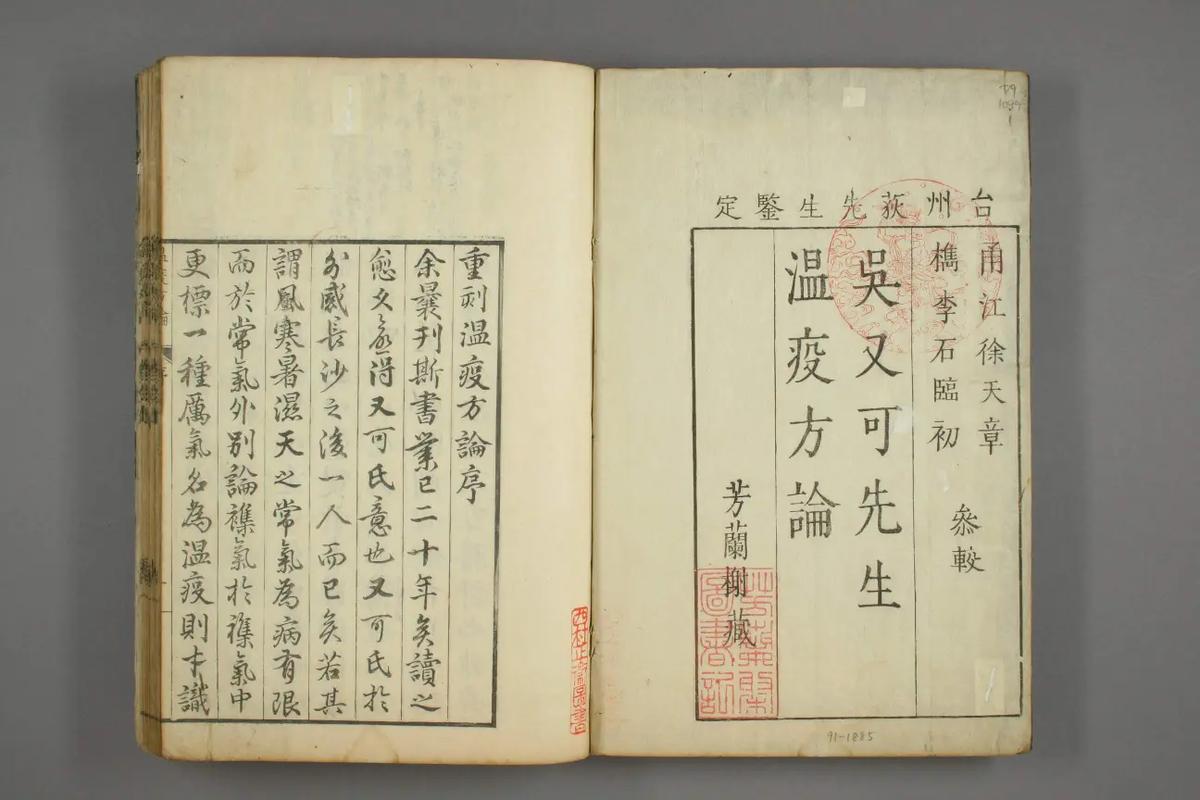 台州荻先生鑒定
甬江徐天章
檇李石臨初
叅較
吳又可先生
温疫方論
芳蘭榭藏
芳蘭榭
圖書記
79
91-1885
重刻温疫方論序
余曩刊斯書業已二十年矣讀之
愈久愈得又可氏意也又可氏於
外感長沙之後一人而已矣若其
謂風寒暑濕天之常氣為病有限
而於常氣外別論襍氣於襍氣中
更標一種厲氣名為温疫則才識